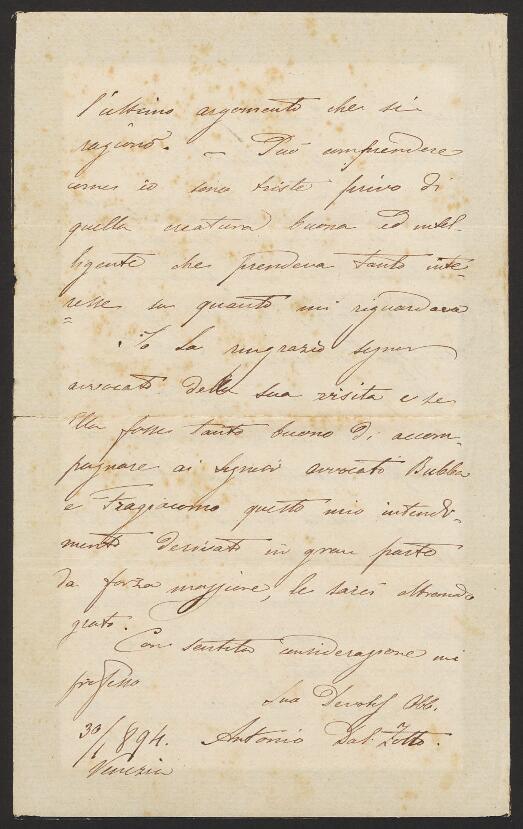 l'ultimo argomento che si
ragionò. – Può comprendere
come io sono triste privo di
quella creatura buona ed intel-
ligente che prendeva tanto inte=
resse su quanto mi riguardava
Io La ringrazio signor
avvocato della sua visita e se
Ella fosse tanto buono di accom-
pagnare ai Signori avvocati Bubba
e Fragiacomo questo mio intendi-
mento derivato in gran parte
da forza maggiore, le sarei oltremodo
grato.
Con sentita considerazione mi
professo
Suo Devotss Obb.
30/1 894. Antonio Dal Zotto.
Venezia